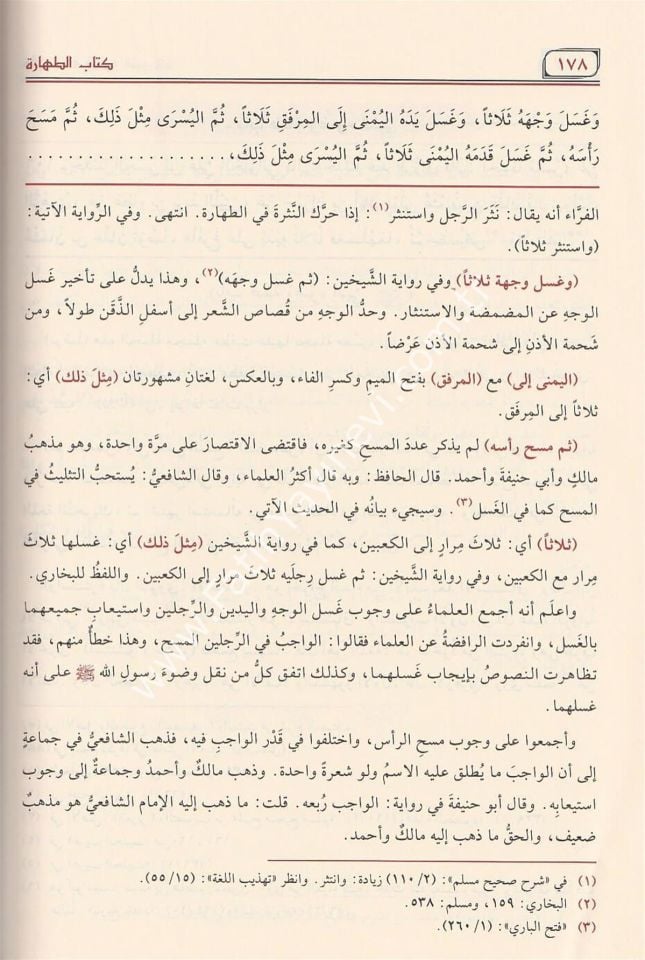 ١٧٨
كتاب الطهارة
وَغَسَلَ وَجْهَهُ ثَلَاثاً، وَغَسَلَ يَدَهُ اليُمْنَى إِلَى المِرْفَقِ ثَلَاثاً، ثُمَّ اليُسْرَى مِثْلَ ذَلِكَ، ثُمَّ مَسَحَ
رَأْسَهُ، ثُمَّ غَسَلَ قَدَمَهُ اليُمْنَى ثَلَاثاً، ثُمَّ اليُسْرَى مِثْلَ ذَلِكَ، . . . . . . . . . . . . . . . . . . .
الفرَّاء أنه يقال: نَثَرَ الرَّجل واستنثر(١): إذا حرَّك النَّثرةَ في الطهارة. انتهى. وفي الرِّواية الآتية:
(واستنثر ثلاثاً).
(وغسل وجهة ثلاثاً) وفي رواية الشَّيخين: (ثم غسل وجهَه)(٢)، وهذا يدلُّ على تأخير غَسل
الوجهِ عن المضمضة والاستنثار. وحدُّ الوجهِ من قُصاص الشَّعر إلى أسفلِ الذَّقَن طولاً، ومن
شَحمة الأذنِ إلى شحمة الأذن عَرْضاً.
(اليمنى إلى) مع (المرفق) بفتح الميمِ وكسرِ الفاء، وبالعكس، لغتانِ مشهورتان (مِثلَ ذلك) أي:
ثلاثاً إلى المِرفَق.
(ثم مسح رأسه) لم يذكر عددَ المسحِ كغيره، فاقتضى الاقتصارَ على مرَّة واحدة، وهو مذهبُ
مالكٍ وأبي حنيفةَ وأحمد. قال الحافظ: وبه قال أكثرُ العلماء، وقال الشافعيُّ: يُستحبُّ التثليثُ في
المسح كما في الغَسل(٣). وسيجيء بيانُه في الحديث الآتي.
(ثلاثاً) أي: ثلاثَ مِرارٍ إلى الكعبين، كما في رواية الشَّيخين (مِثلَ ذلك) أي: غسلها ثلاثَ
مِرار مع الكعبين، وفي رواية الشَّيخين: ثم غسل رِجليه ثلاثَ مرارٍ إلى الكعبين. واللفظُ للبخاري.
واعلَم أنه أجمع العلماءُ على وجوب غَسل الوجهِ واليدين والرِّجلين واستيعابِ جميعهما
بالغَسل، وانفردت الرافضةُ عن العلماء فقالوا: الواجبُ في الرِّجلين المسح، وهذا خطأٌ منهم، فقد
تظاهرت النصوصُ بإيجاب غَسلهما، وكذلك اتفق كلُّ من نقل وضوءَ رسولِ الله ﷺ على أنه
غسلهما.
وأجمعوا على وجوب مسحِ الرأس، واختلفوا في قَدْر الواجبِ فيه، فذهب الشافعيُّ في جماعةٍ
إلى أن الواجبَ ما يُطلق عليه الاسمُ ولو شعرةً واحدة. وذهب مالكٌ وأحمدُ وجماعةٌ إلى وجوب
استيعابِه. وقال أبو حنيفةَ في رواية: الواجب رُبعه. قلت: ما ذهب إليه الإمام الشافعيُّ هو مذهبٌ
ضعيف، والحقُّ ما ذهب إليه مالكٌ وأحمد.
(١) في «شرح صحيح مسلم»: (١١٠/٢) زيادة: وانتثر. وانظر «تهذيب اللغة»: (٥٥/١٥).
(٢) البخاري: ١٥٩، ومسلم: ٥٣٨.
(٣) «فتح الباري»: (٢٦٠/١).